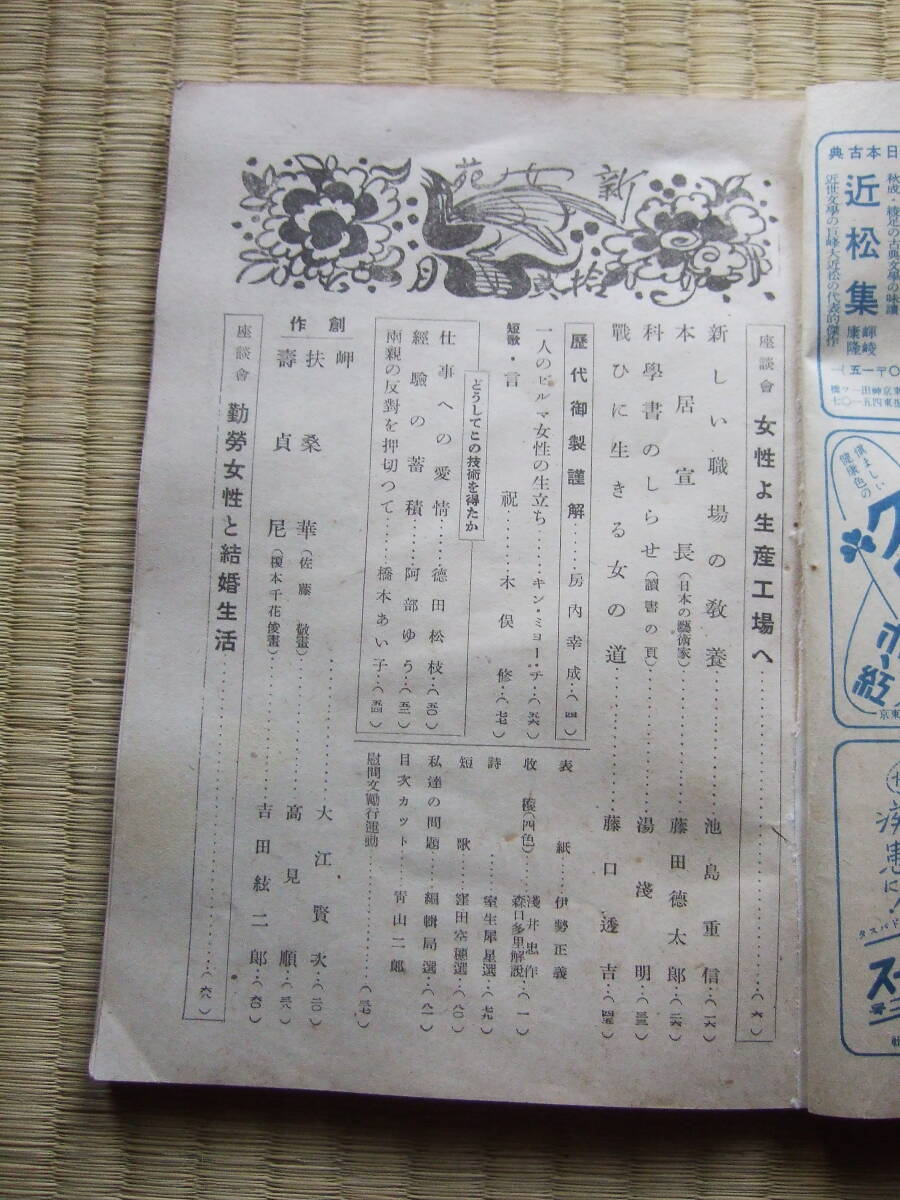 新女苑
拾貮月
座談會 女性よ生産工場へ………(六)
新しい職場の教養………池島重信…(一六)
本居宣長(日本の藝術家)………藤田德太郎…(二六)
科學書のしらせ(讀書の頁)………湯淺明…(三三)
戰ひに生きる女の道………藤口透吉…(四五)
歷代御製謹解……房内幸成…(四)
一人のビルマ女性の生立ち……キン・ミヨー・チ…(五六)
短歌・言祝……木俣修…(一七)
どうしてこの技術を得たか
仕事への愛情……德田松枝…(五〇)
經驗の蓄積……阿部ゆう…(五二)
兩親の反對を押切つて……橋本あい子…(五四)
表紙……伊勢正義
收穫(四色)……淺井忠作
森口多里解説…(一)
詩……室生犀星選…(七九)
短歌……窪田空穗選…(八〇)
私達の問題……編輯局選…(八一)
目次カット……靑山二郎
慰問文勵行運動………(三七)
創作
岬………大江賢次…(二〇)
扶桑華(佐藤敬畫)………高見順…(三八)
壽貞尼(榎本千花俊畫)………吉田絃二郎…(六〇)
座談會 勤勞女性と結婚生活………(六八)
日本古典
近松集
近世文學の巨峰大近松の代表的傑作
疾患に!